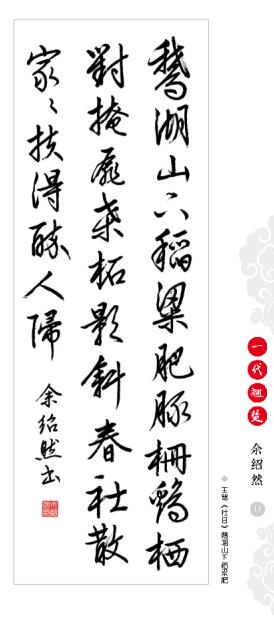 鵝湖山下稻粱肥豚柵鷄栖
對掩扉桒柘影斜春社散
家〻扶得醉人歸
余绍然书
一代翘楚
余绍然
13
王驾《社日》鹅湖山下稻粱肥